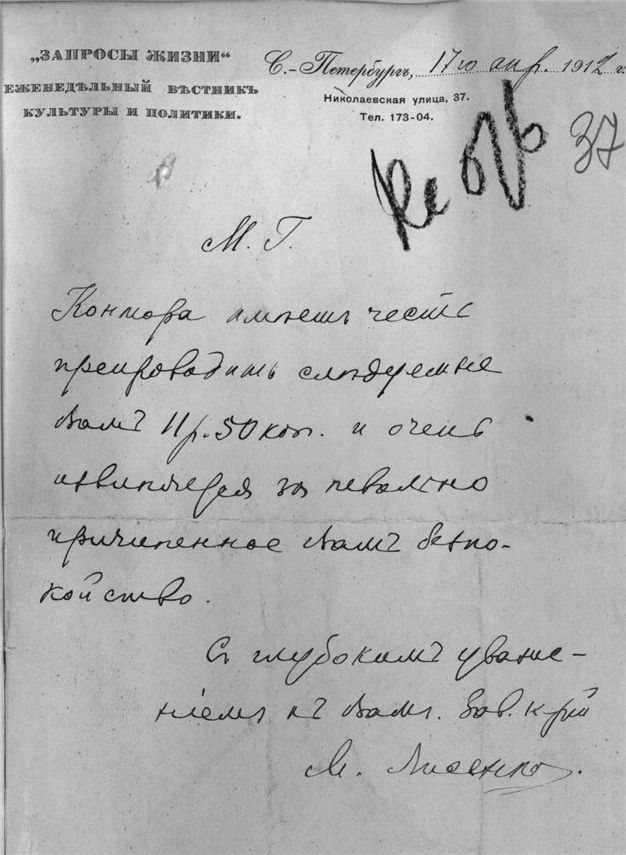 „ЗАПРОСЫ ЖИЗНИ“
ЕЖЕНЕДѢЛЬНЫЙ ВѢСТНИКЪ
КУЛЬТУРЫ И ПОЛИТИКИ.
С.-Петербургъ, 17го апр. 1912 г.
Николаевская улица, 37.
Тел. 173-04.
37
М. Г.
Контора имѣетъ честь
препроводить слѣдуемые
Вамъ 11 р. 50 коп. и очень
извиняется за невольно
причиненное Вамъ безпо-
койство.
Съ глубокимъ уваже-
ніемъ къ Вамъ. Зав. к-рой
М. Лисенко.